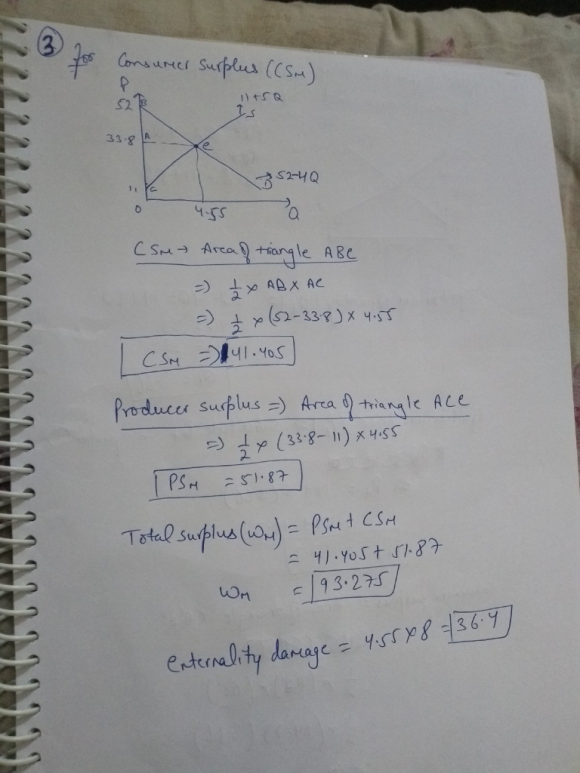 3 for Consumer surplus (CSM)
P
52 B
11+5Q
S
33.8 A
e
→ 52-4Q
D
11 C
0 4.55 Q
CSM → Area of triangle ABC
=> 1/2 × AB × AC
=> 1/2 × (52-33.8) × 4.55
CSM => 41.405
Producer surplus => Area of triangle ACC
=> 1/2 × (33.8-11) × 4.55
PSM = 51.87
Total surplus (WM) = PSM + CSM
= 41.405 + 51.87
WM = 93.275
Enternality damage = 4.55 × 8 = 36.4